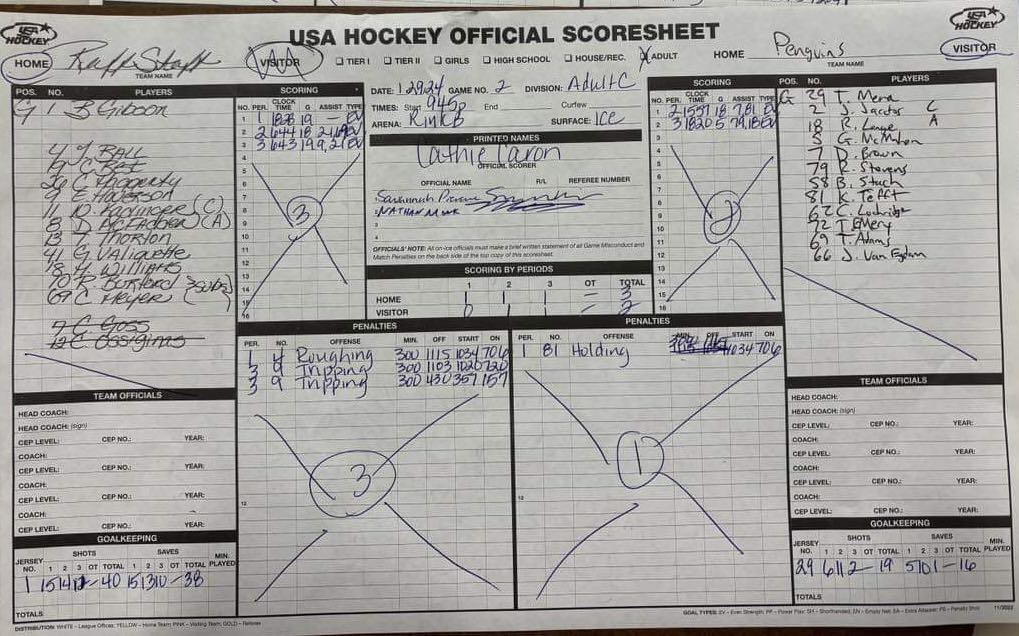 USA HOCKEY OFFICIAL SCORESHEET
USA HOCKEY
USA HOCKEY
HOME Raff Staff VISITOR
TEAM NAME
TIER I TIER II GIRLS HIGH SCHOOL HOUSE/REC. ADULT
HOME Penguins VISITOR
TEAM NAME
POS. NO. PLAYERS
G 1 B Gibson
4 J BALL
26 C Haggerty
9 E Harrison
11 D (C)
8 D McFadden (A)
13 T Thorton
41 G Valiquette
18 A Williams
70 R Burford
69 C Meyer SUBS
7 C Goss
12 C
SCORING
NO. PER. CLOCK TIME G ASSIST TYPE
1 1 1826 19 — EV
2 2 644 18 EV
3 3 643 19 9, 21 EV
4
5
6
7
8
9
10
11
12
13
14
15
16
3
DATE: 12924 GAME NO. 2 DIVISION: Adult C
TIMES: Start 945p End Curfew
ARENA: Rink B SURFACE: ICE
PRINTED NAMES
Cathie Caron
OFFICIAL SCORER
OFFICIAL NAME R/L REFEREE NUMBER
Savannah
2 NATHAN
3
4
OFFICIALS' NOTE: All on-ice officials must make a brief written statement of all Game Misconduct and
Match Penalties on the back side of the top copy of this scoresheet.
SCORING BY PERIODS
1 2 3 OT TOTAL
HOME 1 1 1 — 3
VISITOR 0 1 1 — 2
SCORING
NO. PER. CLOCK TIME G ASSIST TYPE
1 2 1557 18 7, 81 EV
2 3 1820 5 79, 18 EV
3
4
5
6
7
8
9
10
11
12
13
14
15
16
2
POS. NO. PLAYERS
G 29 T. Mera
2 J. Jacobs C
18 R. Lange A
5 G. McMahon
7 D. Brown
79 R. Stevens
58 B. Stach
81 K. Tefft
62 C.
72 T. Emery
67 T. Adams
66 J. Van Eydam
PENALTIES
PER. NO. OFFENSE MIN. OFF START ON
1 4 Roughing 300 1115 1034 706
3 9 Tripping 300 1103 1020 720
3 9 Tripping 300 430 357 157
12
3
PENALTIES
PER. NO. OFFENSE MIN. OFF START ON
1 81 Holding 1034 706
12
1
TEAM OFFICIALS
HEAD COACH:
HEAD COACH: (sign)
CEP LEVEL: CEP NO.: YEAR:
COACH:
CEP LEVEL: CEP NO.: YEAR:
COACH:
CEP LEVEL: CEP NO.: YEAR:
COACH:
CEP LEVEL: CEP NO.: YEAR:
GOALKEEPING
JERSEY NO. SHOTS 1 2 3 OT TOTAL SAVES 1 2 3 OT TOTAL MIN. PLAYED
1 15 14 — 40 15 13 10 — 38
TOTALS
TEAM OFFICIALS
HEAD COACH:
HEAD COACH: (sign)
CEP LEVEL: CEP NO.: YEAR:
COACH:
CEP LEVEL: CEP NO.: YEAR:
COACH:
CEP LEVEL: CEP NO.: YEAR:
COACH:
CEP LEVEL: CEP NO.: YEAR:
GOALKEEPING
JERSEY NO. SHOTS 1 2 3 OT TOTAL SAVES 1 2 3 OT TOTAL MIN. PLAYED
29 6 11 2 — 19 5 10 1 — 16
TOTALS
DISTRIBUTION: WHITE – League Offices; YELLOW – Home Team; PINK – Visiting Team; GOLD – Referee
GOAL TYPES: EV – Even Strength; PP – Power Play; SH – Shorthanded; EN – Empty Net; EA – Extra Attacker; PS – Penalty Shot 11/2022